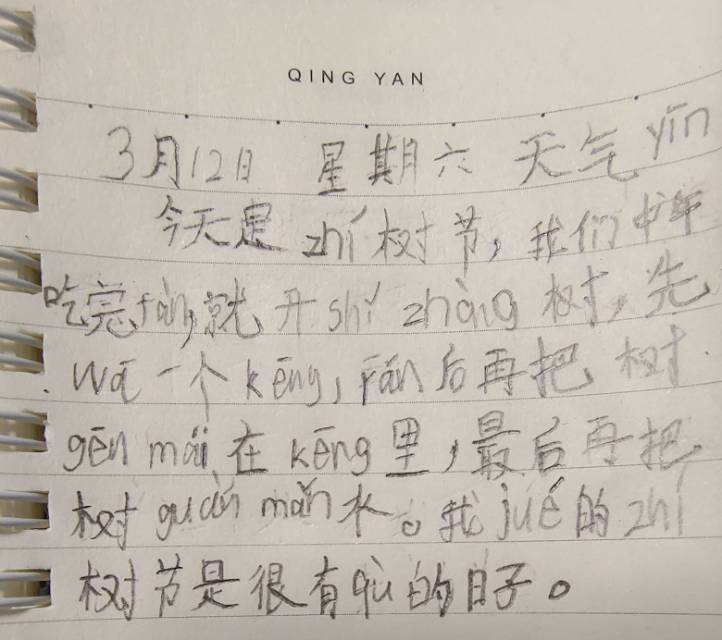 QING YAN
3月12日 星期六 天气 yīn
今天是 zhí 树节，我们中午
吃完fàn，就开shǐ zhòng 树，先
wā 一个 kēng，rán后再把树
gēn mái 在 kēng里，最后再把
树 guàn mǎn水。我jué的 zhí
树节是很有qù的日子。